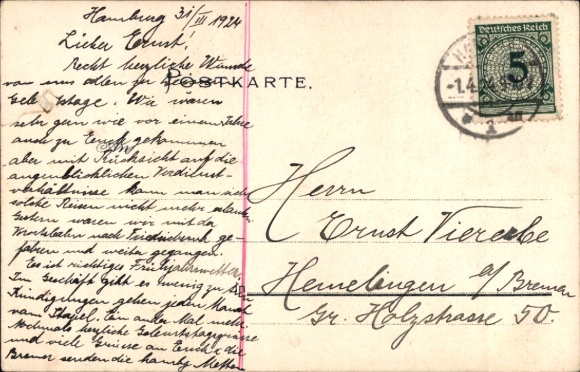 Hamburg 31/III 1924
Lieber Ernst!
Recht herzliche Wünsche
von uns allen zu
Geburtstage. Wir wären
sehr gern wie vor einem Jahre
auch zu Euch gekommen
aber mit Rücksicht auf die
augenblicklichen Verdienst-
verhältnisse kann man sich
solche Reisen nicht mehr erlauben
Gestern waren wir mit der
Vorortsbahn nach Friedrichsruh ge-
fahren und weiter gegangen.
Es ist richtiges Frühjahrswetter.
Im Geschäft gibt es wenig zu tun
Kündigungen gehen jeden Monat
vom Stapel. Ein ander Mal mehr.
Nochmals herzliche Geburtstagsgrüsse
und viele Grüsse an Euch & die
Bremer senden die hamby
POSTKARTE.
Deutsches Reich
5
-1.4.
1
Herrn
Ernst Viereibe
Hemelingen a/Bremen
Gr. Holzstrasse 50.